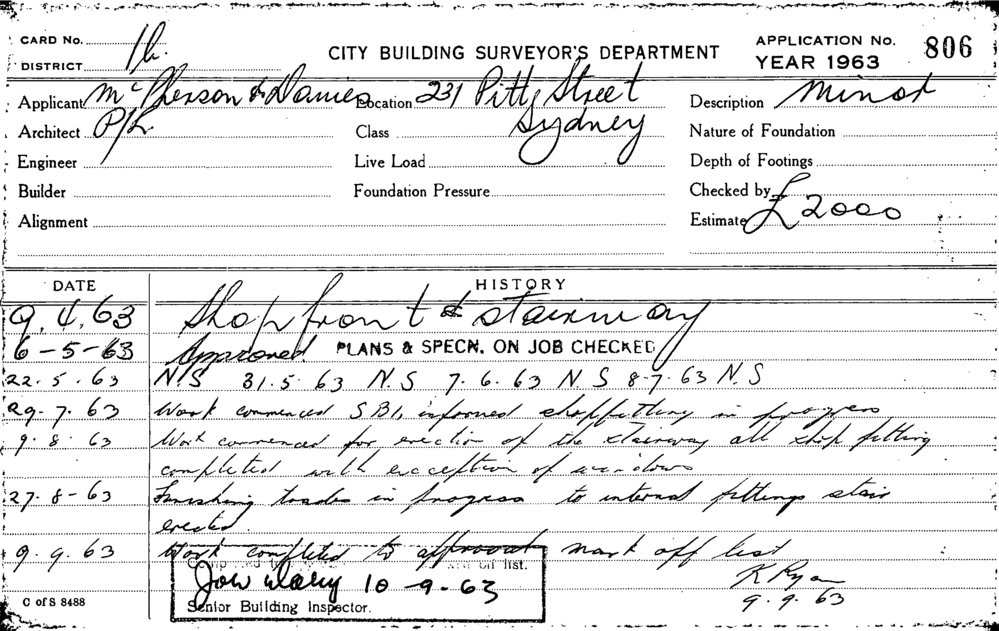 CARD No.
DISTRICT
CITY BUILDING SURVEYOR'S DEPARTMENT
APPLICATION No. 806
YEAR 1963
Applicant McPherson & Davies Location 231 Pitt Street Description Minor
Architect P/L. Class Sydney Nature of Foundation
Engineer Live Load Depth of Footings
Builder Foundation Pressure Checked by
Alignment Estimate £2000
DATE HISTORY
9.4.63 Shop front & stairway
6-5-63 Approved PLANS & SPECN. ON JOB CHECKED
22.5.63 N/S 31.5.63 N.S 7.6.63 N.S 8.7.63 N.S
29.7.63 Work commenced S.B.I. informed shopfitting in progress
9.8.63 Work commenced for erection of the stairway all shop fitting
completed with exception of windows
27-8-63 Finishing trades in progress to internal fittings stair
erected.
9.9.63 Work completed to approval mark off list
K Ryan
9.9.63
off list.
10-9-63
Senior Building Inspector.
C of S 8488